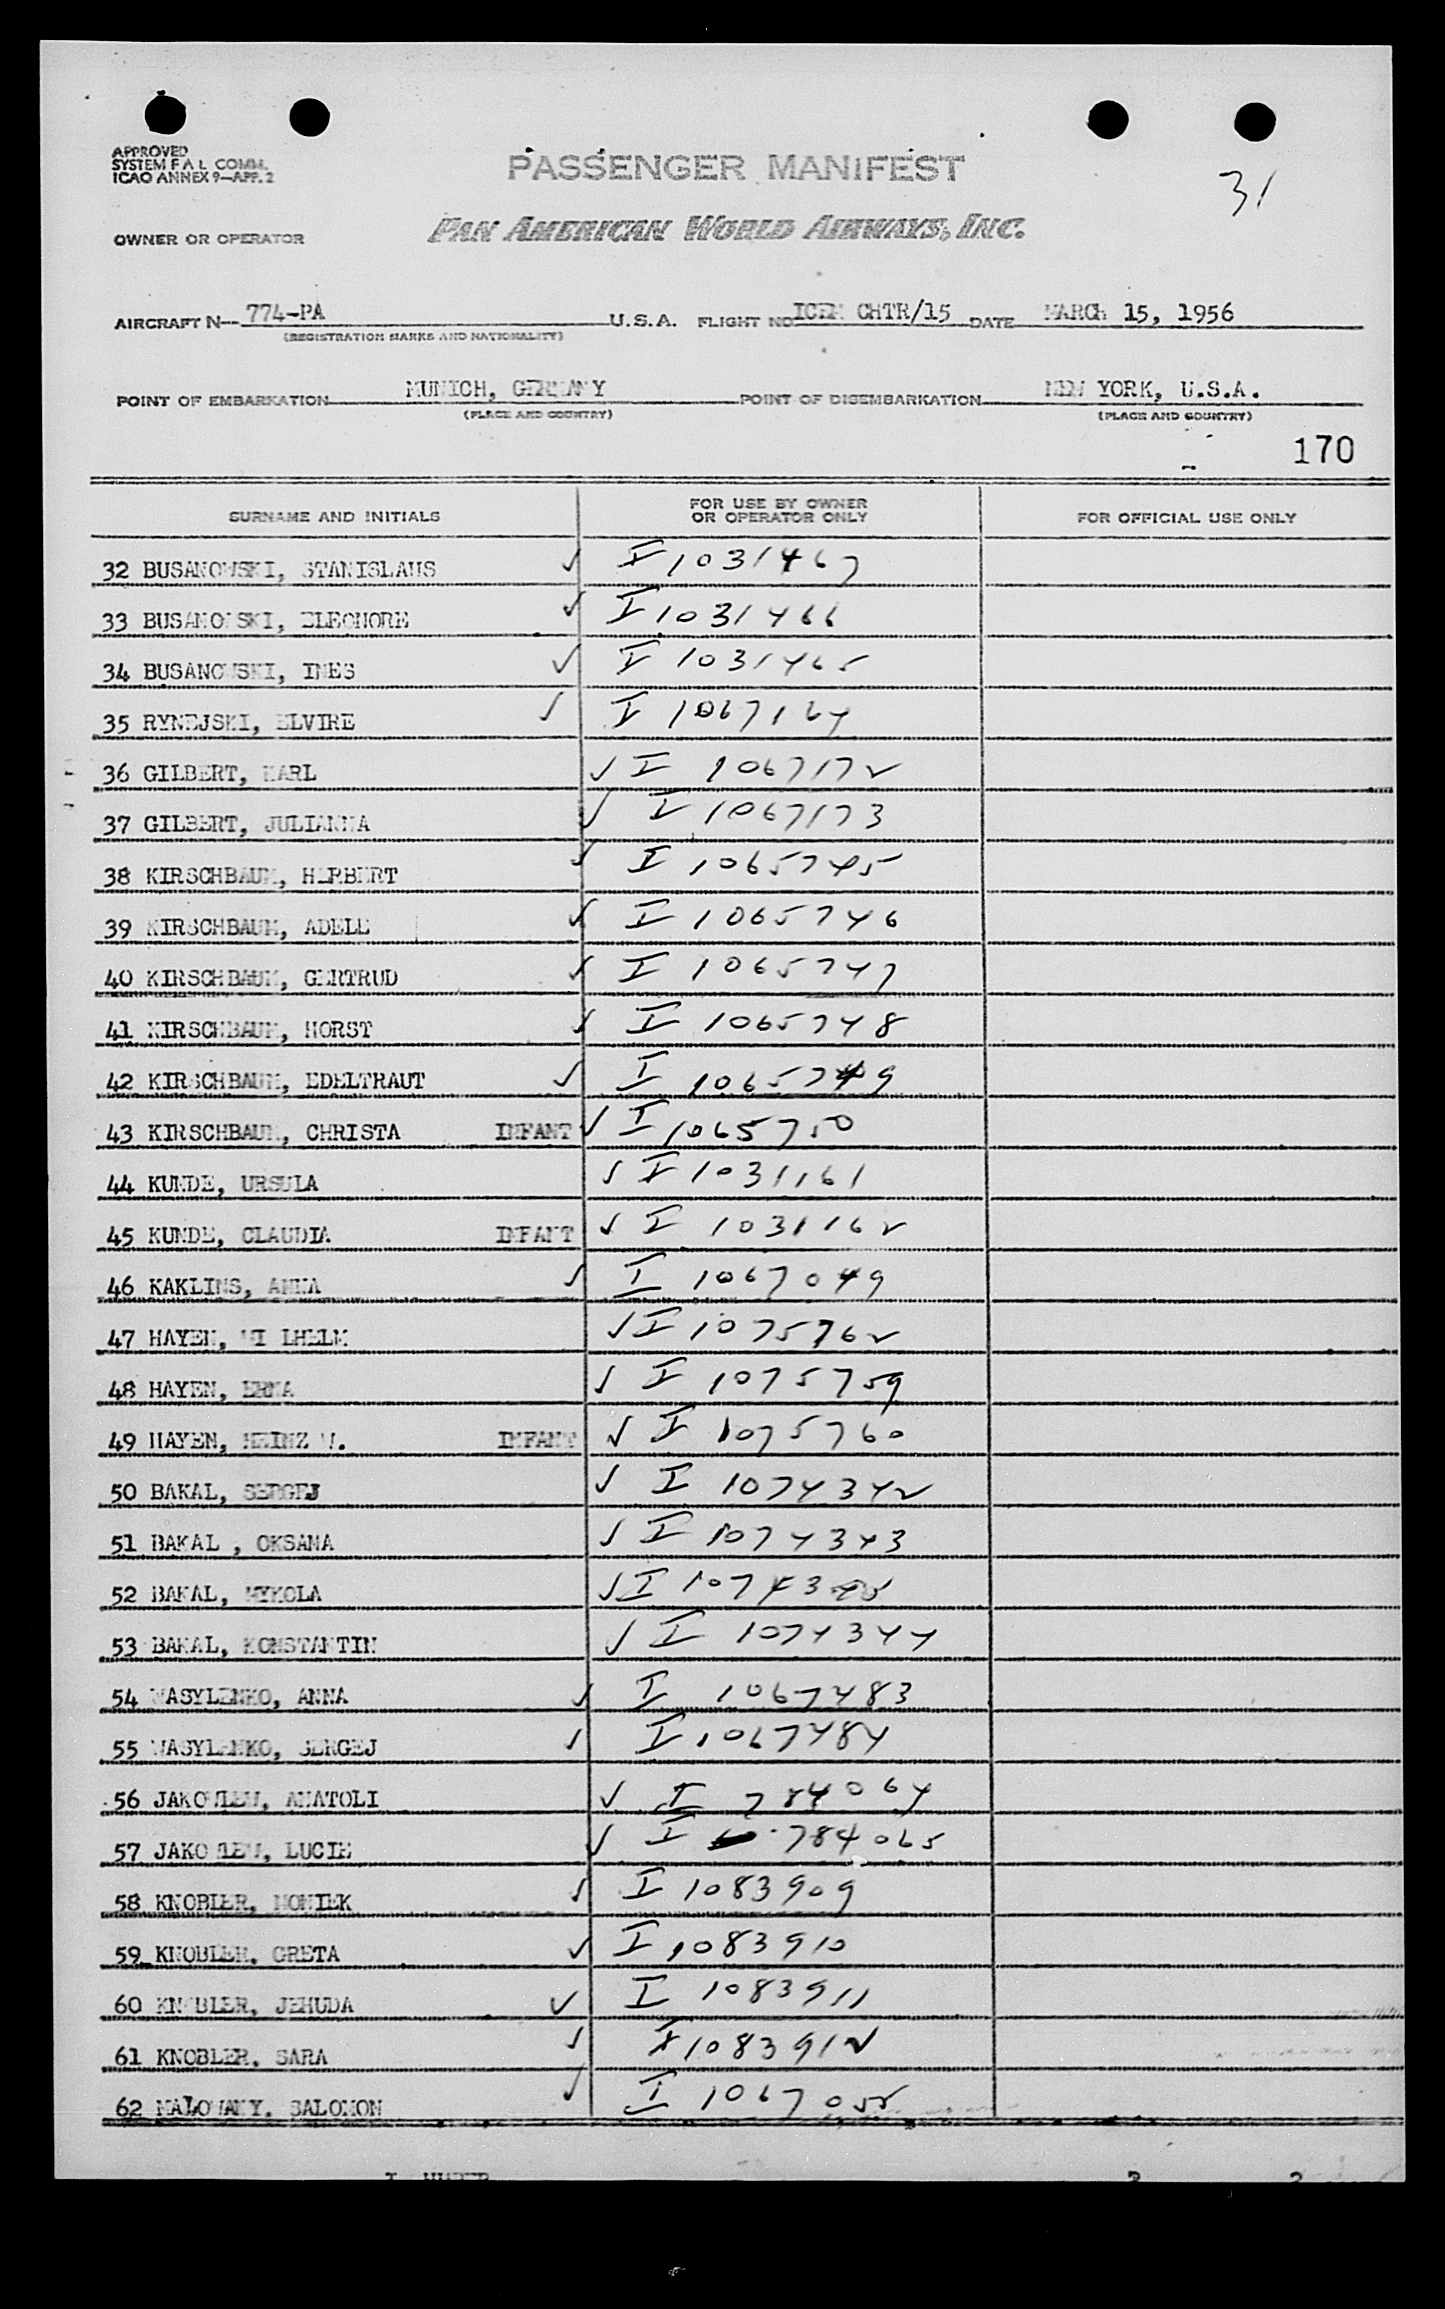 APPROVED
SYSTEM F A L COMM.
ICAO ANNEX 9—APP. 2
PASSENGER MANIFEST
31
OWNER OR OPERATOR
PAN AMERICAN WORLD AIRWAYS, INC.
AIRCRAFT N— 774-PA U.S.A. FLIGHT NO ICEM CHTR/15 DATE MARCH 15, 1956
(REGISTRATION MARKS AND NATIONALITY)
POINT OF EMBARKATION MUNICH, GERMANY POINT OF DISEMBARKATION NEW YORK, U.S.A.
(PLACE AND COUNTRY) (PLACE AND COUNTRY)
170
SURNAME AND INITIALS FOR USE BY OWNER OR OPERATOR ONLY FOR OFFICIAL USE ONLY
32 BUSANOWSKI, STANISLAUS ✓ I 1031467
33 BUSANOWSKI, ELEONORE ✓ I 1031466
34 BUSANOWSKI, INES ✓ I 1031465
35 RYNEJSKI, ELVIRE ✓ I 1067164
36 GILBERT, KARL ✓ I 1067172
37 GILBERT, JULIANNA ✓ I 1067173
38 KIRSCHBAUM, HERBERT ✓ I 1065745
39 KIRSCHBAUM, ADELE ✓ I 1065746
40 KIRSCHBAUM, GERTRUD ✓ I 1065747
41 KIRSCHBAUM, HORST ✓ I 1065748
42 KIRSCHBAUM, EDELTRAUT ✓ I 1065749
43 KIRSCHBAUM, CHRISTA INFANT ✓ I 1065750
44 KUNDE, URSULA ✓ I 1031161
45 KUNDE, CLAUDIA INFANT ✓ I 1031162
46 KAKLINS, ANNA ✓ I 1067049
47 HAYEN, WILHELM ✓ I 1075762
48 HAYEN, ERNA ✓ I 1075759
49 HAYEN, HEINZ W. INFANT ✓ I 1075760
50 BAKAL, SERGEJ ✓ I 1074342
51 BAKAL , OKSANA ✓ I 1074343
52 BAKAL, MYKOLA ✓ I
53 BAKAL, KONSTANTIN ✓ I 1074344
54 WASYLENKO, ANNA ✓ I 1067483
55 WASYLENKO, SERGEJ ✓ I 1067484
56 JAKOWLEW, ANATOLI ✓ I 784064
57 JAKOWLEW, LUCIE ✓ I 784065
58 KNOBLER, MONIEK ✓ I 1083909
59 KNOBLER, GRETA ✓ I 1083910
60 KNOBLER, JEHUDA ✓ I 1083911
61 KNOBLER, SARA ✓ I 1083912
62 MALOWANY, SALOMON ✓ I 1067055